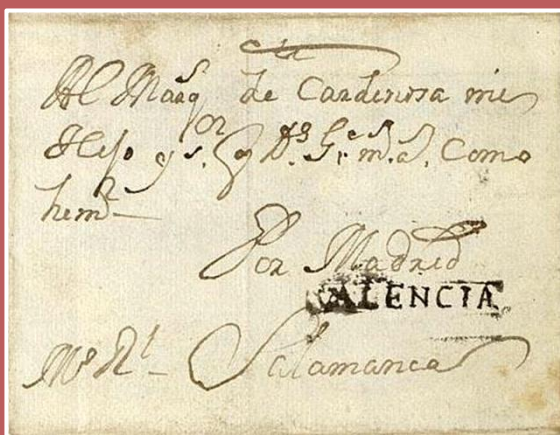 Al Marqs de Cardenosa mi
Hijo ys. or q Ds. Ge. ms. as. Como
hemo
Por Madrid
VALENCIA
Mo Rl Salamanca